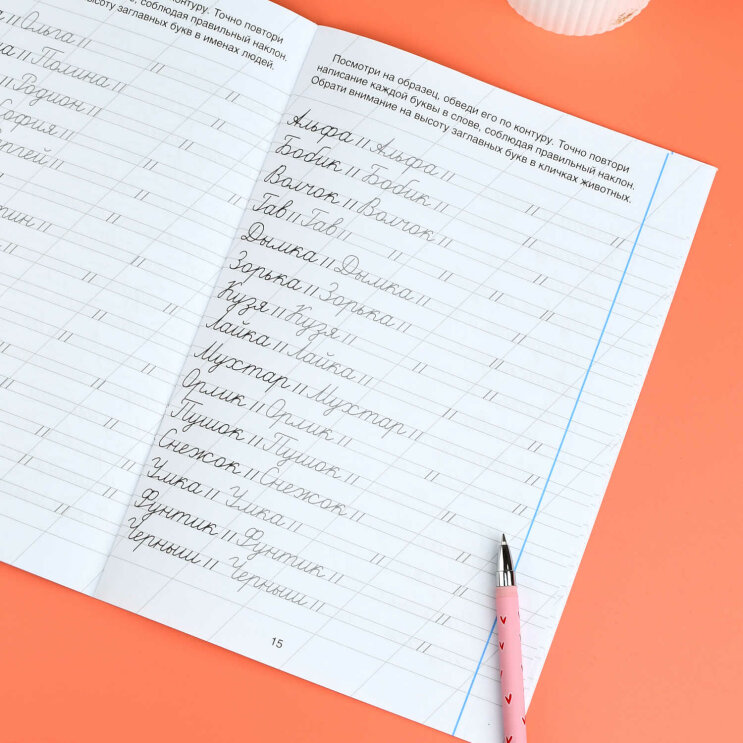 контуру. Точно повтори
соблюдая правильный наклон.
высоту заглавных букв в именах людей.
Ольга
Полина
Родион
София
Посмотри на образец, обведи его по контуру. Точно повтори
написание каждой буквы в слове, соблюдая правильный наклон.
Обрати внимание на высоту заглавных букв в кличках животных.
Альфа Альфа
Бобик Бобик
Волчок Волчок
Гав Гав
Дымка Дымка
Зорька Зорька
Кузя Кузя
Лайка Лайка
Мухтар Мухтар
Орлик Орлик
Пушок Пушок
Снежок Снежок
Умка Умка
Фунтик Фунтик
Черныш Черныш
15